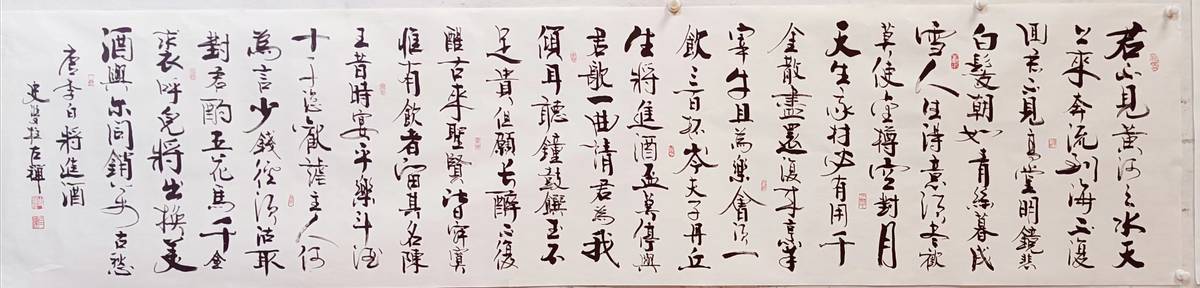 君不見黃河之水天
上來奔流到海不復
回君不見高堂明鏡悲
白髮朝如青絲暮成
雪人生得意須盡歡
莫使金樽空對月
天生我材必有用千
金散盡還復來烹羊
宰牛且為樂會須一
飲三百杯岑夫子丹丘
生將進酒盃莫停與
君歌一曲請君為我
傾耳聽鐘鼓饌玉不
足貴但願長醉不復
醒古來聖賢皆寂寞
惟有飲者留其名陳
王昔時宴平樂斗酒
十千恣歡謔主人何
為言少錢徑須沽取
對君酌五花馬千金
裘呼兒將出換美
酒與爾同銷萬古愁
唐李白將進酒